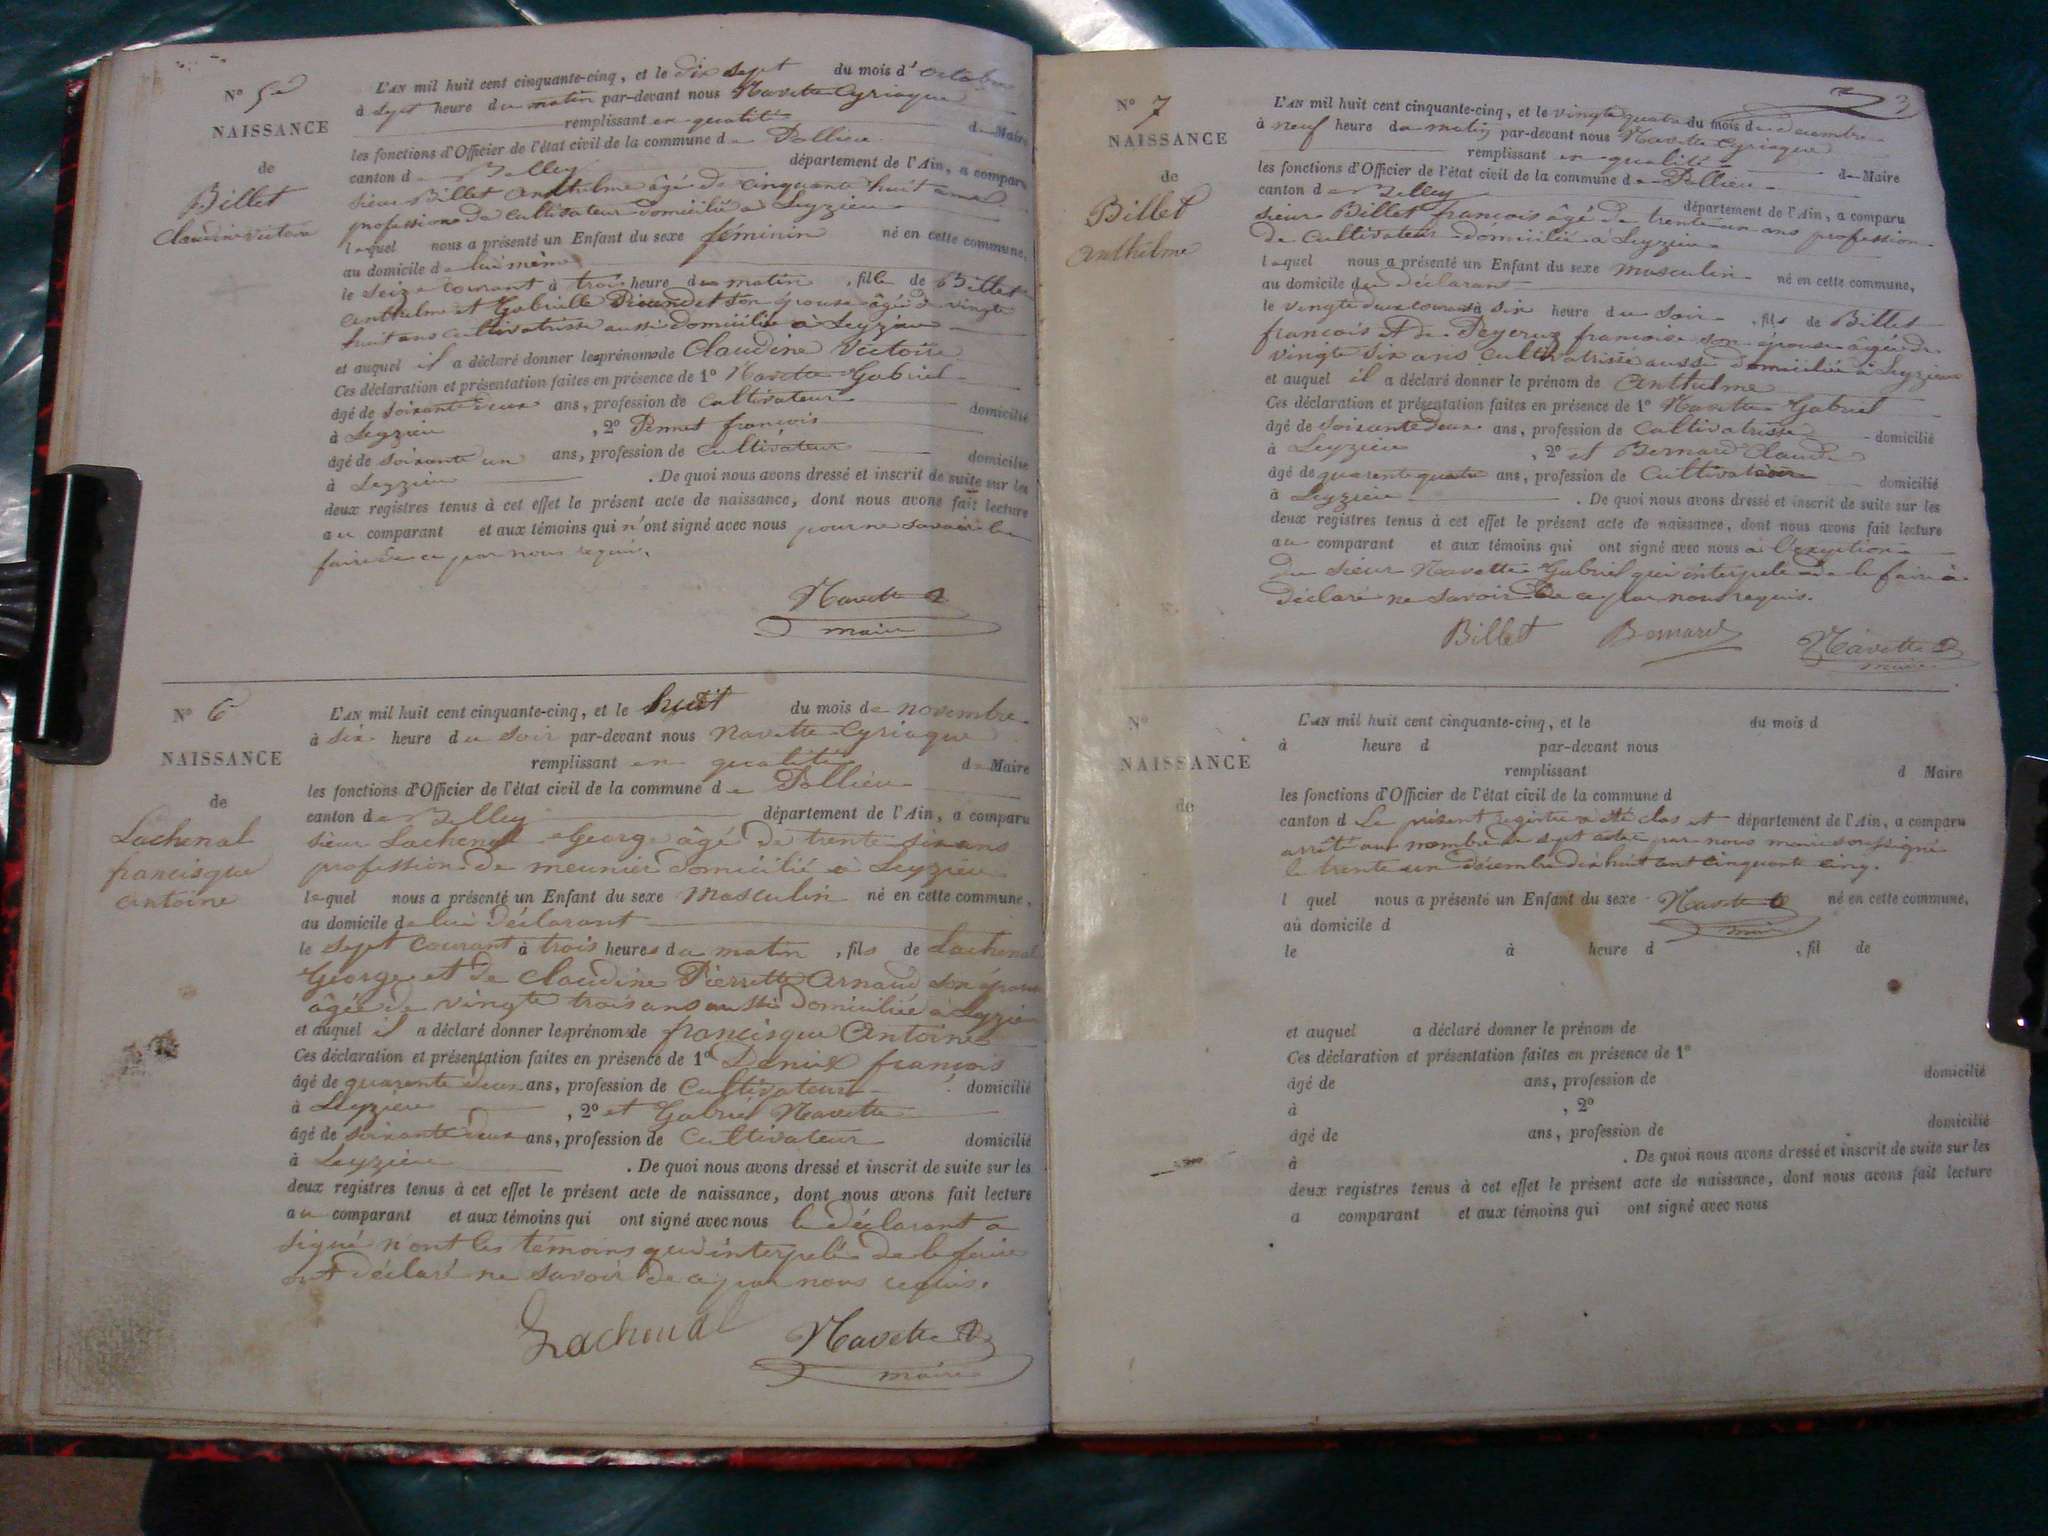 N° 5e
NAISSANCE
de
Billet
Claudine Victoire
L'AN mil huit cent cinquante-cinq, et le dix sept du mois d'octobre
à sept heure du matin par-devant nous Navette Cyriaque
remplissant en qualité de Maire
les fonctions d'Officier de l'état civil de la commune de Pollieu
canton de Belley département de l'Ain, a comparu
sieur Billet Anthelme âgé de cinquante huit ans
profession de cultivateur domicilié à Leyzieu
lequel nous a présenté un Enfant du sexe féminin né en cette commune,
au domicile de lui même
le seize courant à trois heure du matin, fille de Billet
anthelme et Gabrielle son épouse âgée de vingte
huit ans cultivatrisse aussi domiciliée à Leyzieu
et auquel il a déclaré donner les prénoms de Claudine Victoire
Ces déclaration et présentation faites en présence de 1° Navette Gabriel
âgé de soixante deux ans, profession de cultivateur domicilié
à Leyzieu, 2° Pennet françois
âgé de soixante un ans, profession de cultivateur domicilié
à Leyzieu. De quoi nous avons dressé et inscrit de suite sur les
deux registres tenus à cet effet le présent acte de naissance, dont nous avons fait lecture
au comparant et aux témoins qui n'ont signé avec nous pour ne savoir le
faire de ce par nous requis.
Navette
maire
N° 6
NAISSANCE
de
Lachenal
francisque
antoine
L'AN mil huit cent cinquante-cinq, et le huit du mois de novembre
à six heure du soir par-devant nous Navette Cyriaque
remplissant en qualité de Maire
les fonctions d'Officier de l'état civil de la commune de Pollieu
canton de Belley département de l'Ain, a comparu
sieur Lachenal George âgé de trente six ans
profession de meunier domicilié à Leyzieu
lequel nous a présenté un Enfant du sexe Masculin né en cette commune,
au domicile de lui déclarant
le sept courant à trois heures du matin, fils de Lachenal
George et de Claudine Pierrette Arnaud son épouse
âgée de vingte trois ans aussi domiciliée à Leyzieu
et auquel il a déclaré donner les prénoms de francisque Antoine
Ces déclaration et présentation faites en présence de 1° Denix françois
âgé de quarente deux ans, profession de Cultivateur domicilié
à Leyzieu, 2° et Gabriel Navette
âgé de soixante deux ans, profession de cultivateur domicilié
à Leyzieu. De quoi nous avons dressé et inscrit de suite sur les
deux registres tenus à cet effet le présent acte de naissance, dont nous avons fait lecture
au comparant et aux témoins qui ont signé avec nous le déclarant a
signé n'ont les témoins qui interpelé de le faire
ont déclaré ne savoir de ce par nous requis.
Lachenal
Navette
maire
3
N° 7
NAISSANCE
de
Billet
anthelme
L'AN mil huit cent cinquante-cinq, et le vingte quatre du mois de decembre
à neuf heure du matin par-devant nous Navette Cyriaque
remplissant en qualité de Maire
les fonctions d'Officier de l'état civil de la commune de Pollieu
canton de Belley département de l'Ain, a comparu
sieur Billet françois âgé de trente un ans profession
de Cultivateur domicilié à Leyzieu
lequel nous a présenté un Enfant du sexe masculin né en cette commune,
au domicile du déclarant
le vingte deux courant à six heure du soir, fils de Billet
françois et de Peycruz françoise son épouse âgée de
vingte six ans cultivatrisse aussi domiciliée à Leyzieu
et auquel il a déclaré donner le prénom de Anthelme
Ces déclaration et présentation faites en présence de 1° Navette Gabriel
âgé de soixante deux ans, profession de Cultivatrisse domicilié
à Leyzieu, 2° et Bernard Claude
âgé de quarente quatre ans, profession de Cultivateur domicilié
à Leyzieu. De quoi nous avons dressé et inscrit de suite sur les
deux registres tenus à cet effet le présent acte de naissance, dont nous avons fait lecture
au comparant et aux témoins qui ont signé avec nous à l'exception
du sieur Navette Gabriel qui interpelé de le faire à
déclaré ne savoir de ce par nous requis.
Billet Bernard Navette
maire
N°
NAISSANCE
de
L'AN mil huit cent cinquante-cinq, et le du mois d
à heure d par-devant nous
remplissant d Maire
les fonctions d'Officier de l'état civil de la commune d
canton d Le présent registre a été clos et département de l'Ain, a comparu
arrêté au nombre de sept actes par nous maire soussigné
le trente un décembre dix huit cent cinquante cinq.
l quel nous a présenté un Enfant du sexe Navette né en cette commune,
au domicile d maire
le à heure d, fil de
et auquel a déclaré donner le prénom de
Ces déclaration et présentation faites en présence de 1°
âgé de ans, profession de domicilié
à, 2°
âgé de ans, profession de domicilié
à. De quoi nous avons dressé et inscrit de suite sur les
deux registres tenus à cet effet le présent acte de naissance, dont nous avons fait lecture
a comparant et aux témoins qui ont signé avec nous